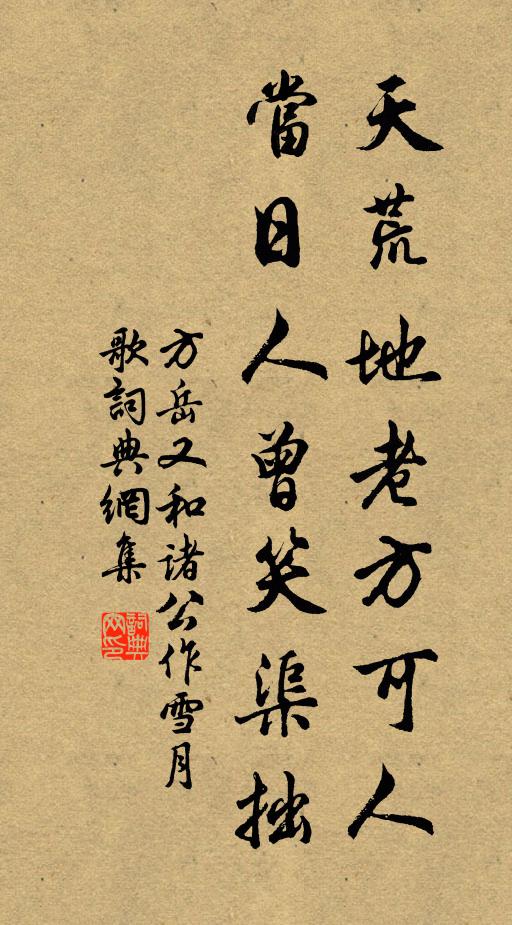 天荒地老方可人
當日人曾笑渠拙
方岳又和诸公作雪月
歌詞典網集
詞典网印